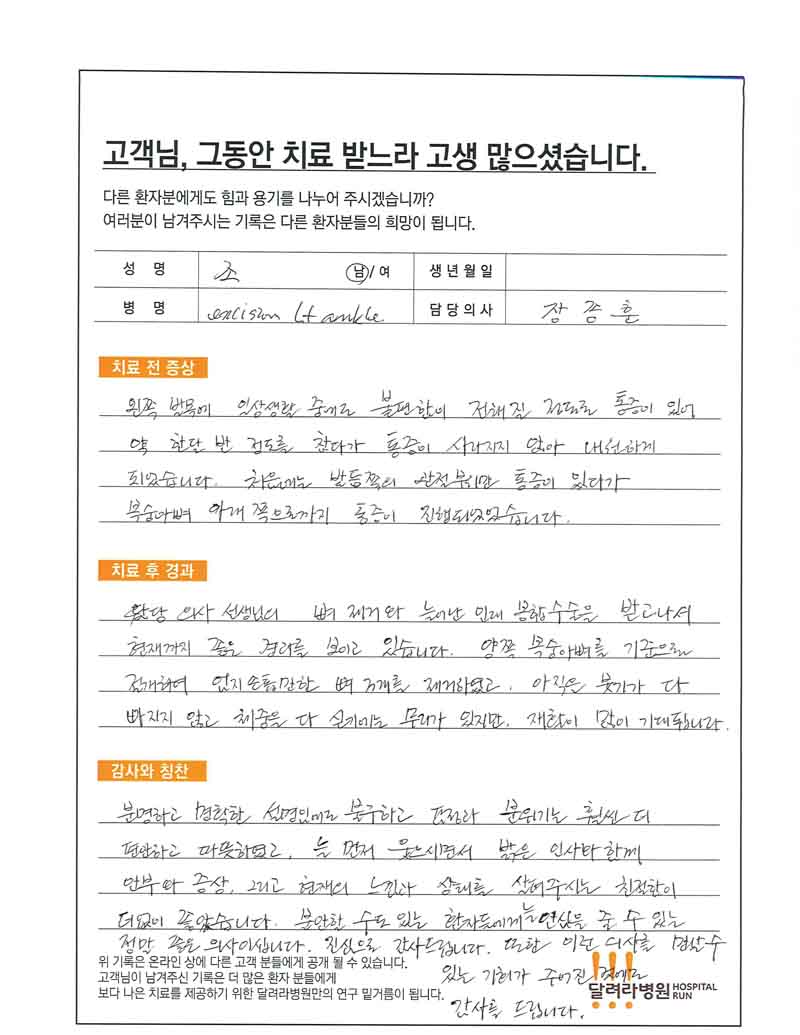 고객님, 그동안 치료 받느라 고생 많으셨습니다.
다른 환자분에게도 힘과 용기를 나누어 주시겠습니까?
여러분이 남겨주시는 기록은 다른 환자분들의 희망이 됩니다.
성 명 조 남/여 생년월일
병 명 excision Lt ankle 담당의사 장종훈
치료 전 증상
왼쪽 발목에 일상생활 중에도 불편함이 전해질 정도로 통증이 있어
약 한달 반 정도를 참다가 통증이 사라지지 않아 내원하게
되었습니다. 처음에는 발등쪽의 관절부위만 통증이 있다가
복숭아뼈 아래쪽으로까지 통증이 진행되었었습니다.
치료 후 경과
담당 의사 선생님의 뼈 제거와 늘어난 인대 봉합수술을 받고나서
현재까지 좋은 경과를 보이고 있습니다. 양쪽 복숭아뼈를 기준으로
절개하여 엄지손톱만한 뼈 조각를 제거하였고, 아직은 붓기가 다
빠지지 않고 체중을 다 싣기에는 무리가 있지만, 재활이 많이 기대됩니다.
감사와 칭찬
분명하고 명확한 설명임에도 불구하고 표정과 분위기는 훨씬 더
편안하고 따뜻하였고, 늘 먼저 웃으시면서 밝은 인사와 함께
안부와 증상, 그리고 현재의 느낌과 상태를 살펴주시는 친절함이
더없이 좋았습니다. 불안한 수도 있는 환자들에게 늘 안심을 줄 수 있는
정말 좋은 의사이십니다. 진심으로 감사드립니다. 또한 이런 의사를 만날 수
있는 기회가 주어진 것에도
감사를 드립니다.
위 기록은 온라인 상에 다른 고객 분들에게 공개 될 수 있습니다.
고객님이 남겨주신 기록은 더 많은 환자 분들에게
보다 나은 치료를 제공하기 위한 달려라병원만의 연구 밑거름이 됩니다.
달려라병원 HOSPITAL RUN